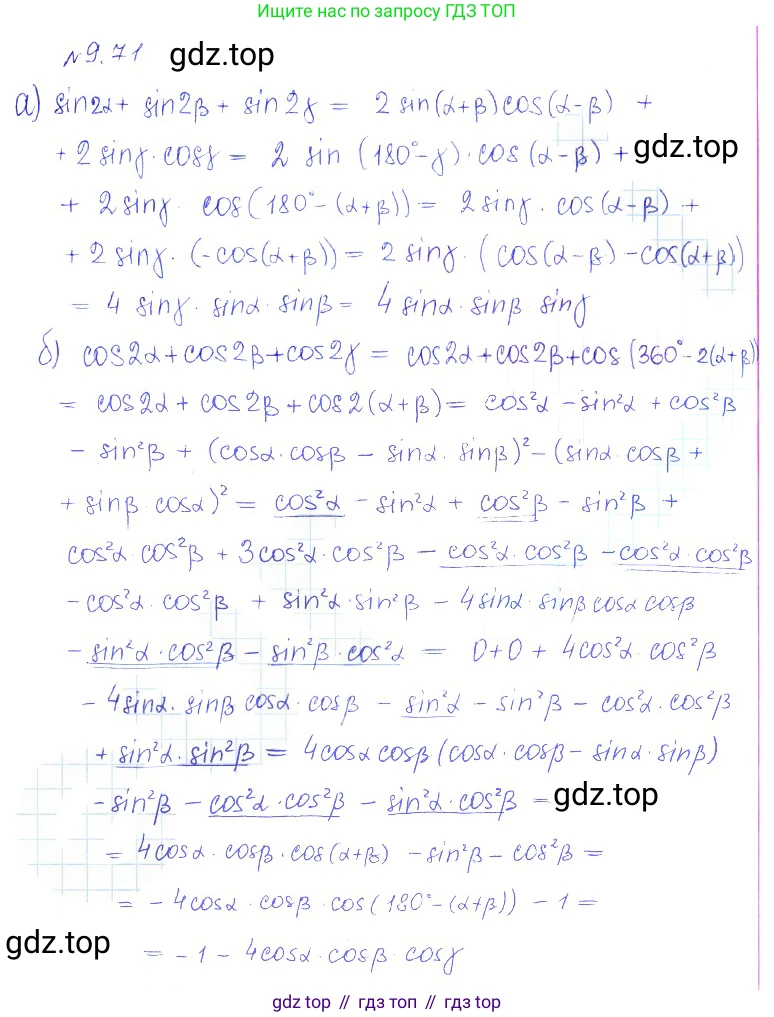 Ищите нас по запросу ГДЗ ТОП
№9.71 gdz.top
а) sin2α + sin2β + sin2γ = 2 sin(α+β)cos(α-β) +
+ 2 sinγ·cosγ = 2 sin (180°-γ)·cos(α-β) +
gdz.top
+ 2 sinγ · cos(180°-(α+β)) = 2 sinγ · cos(α-β) +
+ 2 sinγ · (-cos(α+β)) = 2 sinγ · (cos(α-β) - cos(α+β))
= 4 sinγ · sinα · sinβ = 4 sinα · sinβ sinγ
б) cos2α + cos2β + cos2γ = cos2α + cos2β + cos(360°-2(α+β))
= cos2α + cos2β + cos2(α+β) = cos²α - sin²α + cos²β
- sin²β + (cosα·cosβ - sinα·sinβ)² - (sinα·cosβ +
+ sinβ·cosα)² = cos²α - sin²α + cos²β - sin²β +
cos²α·cos²β + 3cos²α·cos²β - cos²α·cos²β - cos²α·cos²β
- cos²α·cos²β + sin²α·sin²β - 4sinα·sinβ cosα cosβ
- sin²α·cos²β - sin²β·cos²α = 0+0+4cos²α·cos²β
- 4sinα·sinβ cosα·cosβ - sin²α - sin²β - cos²α·cos²β
+ sin²α·sin²β = 4cosα cosβ (cosα·cosβ - sinα·sinβ)
- sin²β - cos²α·cos²β - sin²α·cos²β =
gdz.top
= 4cosα·cosβ·cos(α+β) - sin²β - cos²β =
= -4cosα·cosβ·cos(180°-(α+β)) - 1 =
gdz.top
= -1 - 4cosα·cosβ·cosγ
gdz top // гдз топ // gdz top